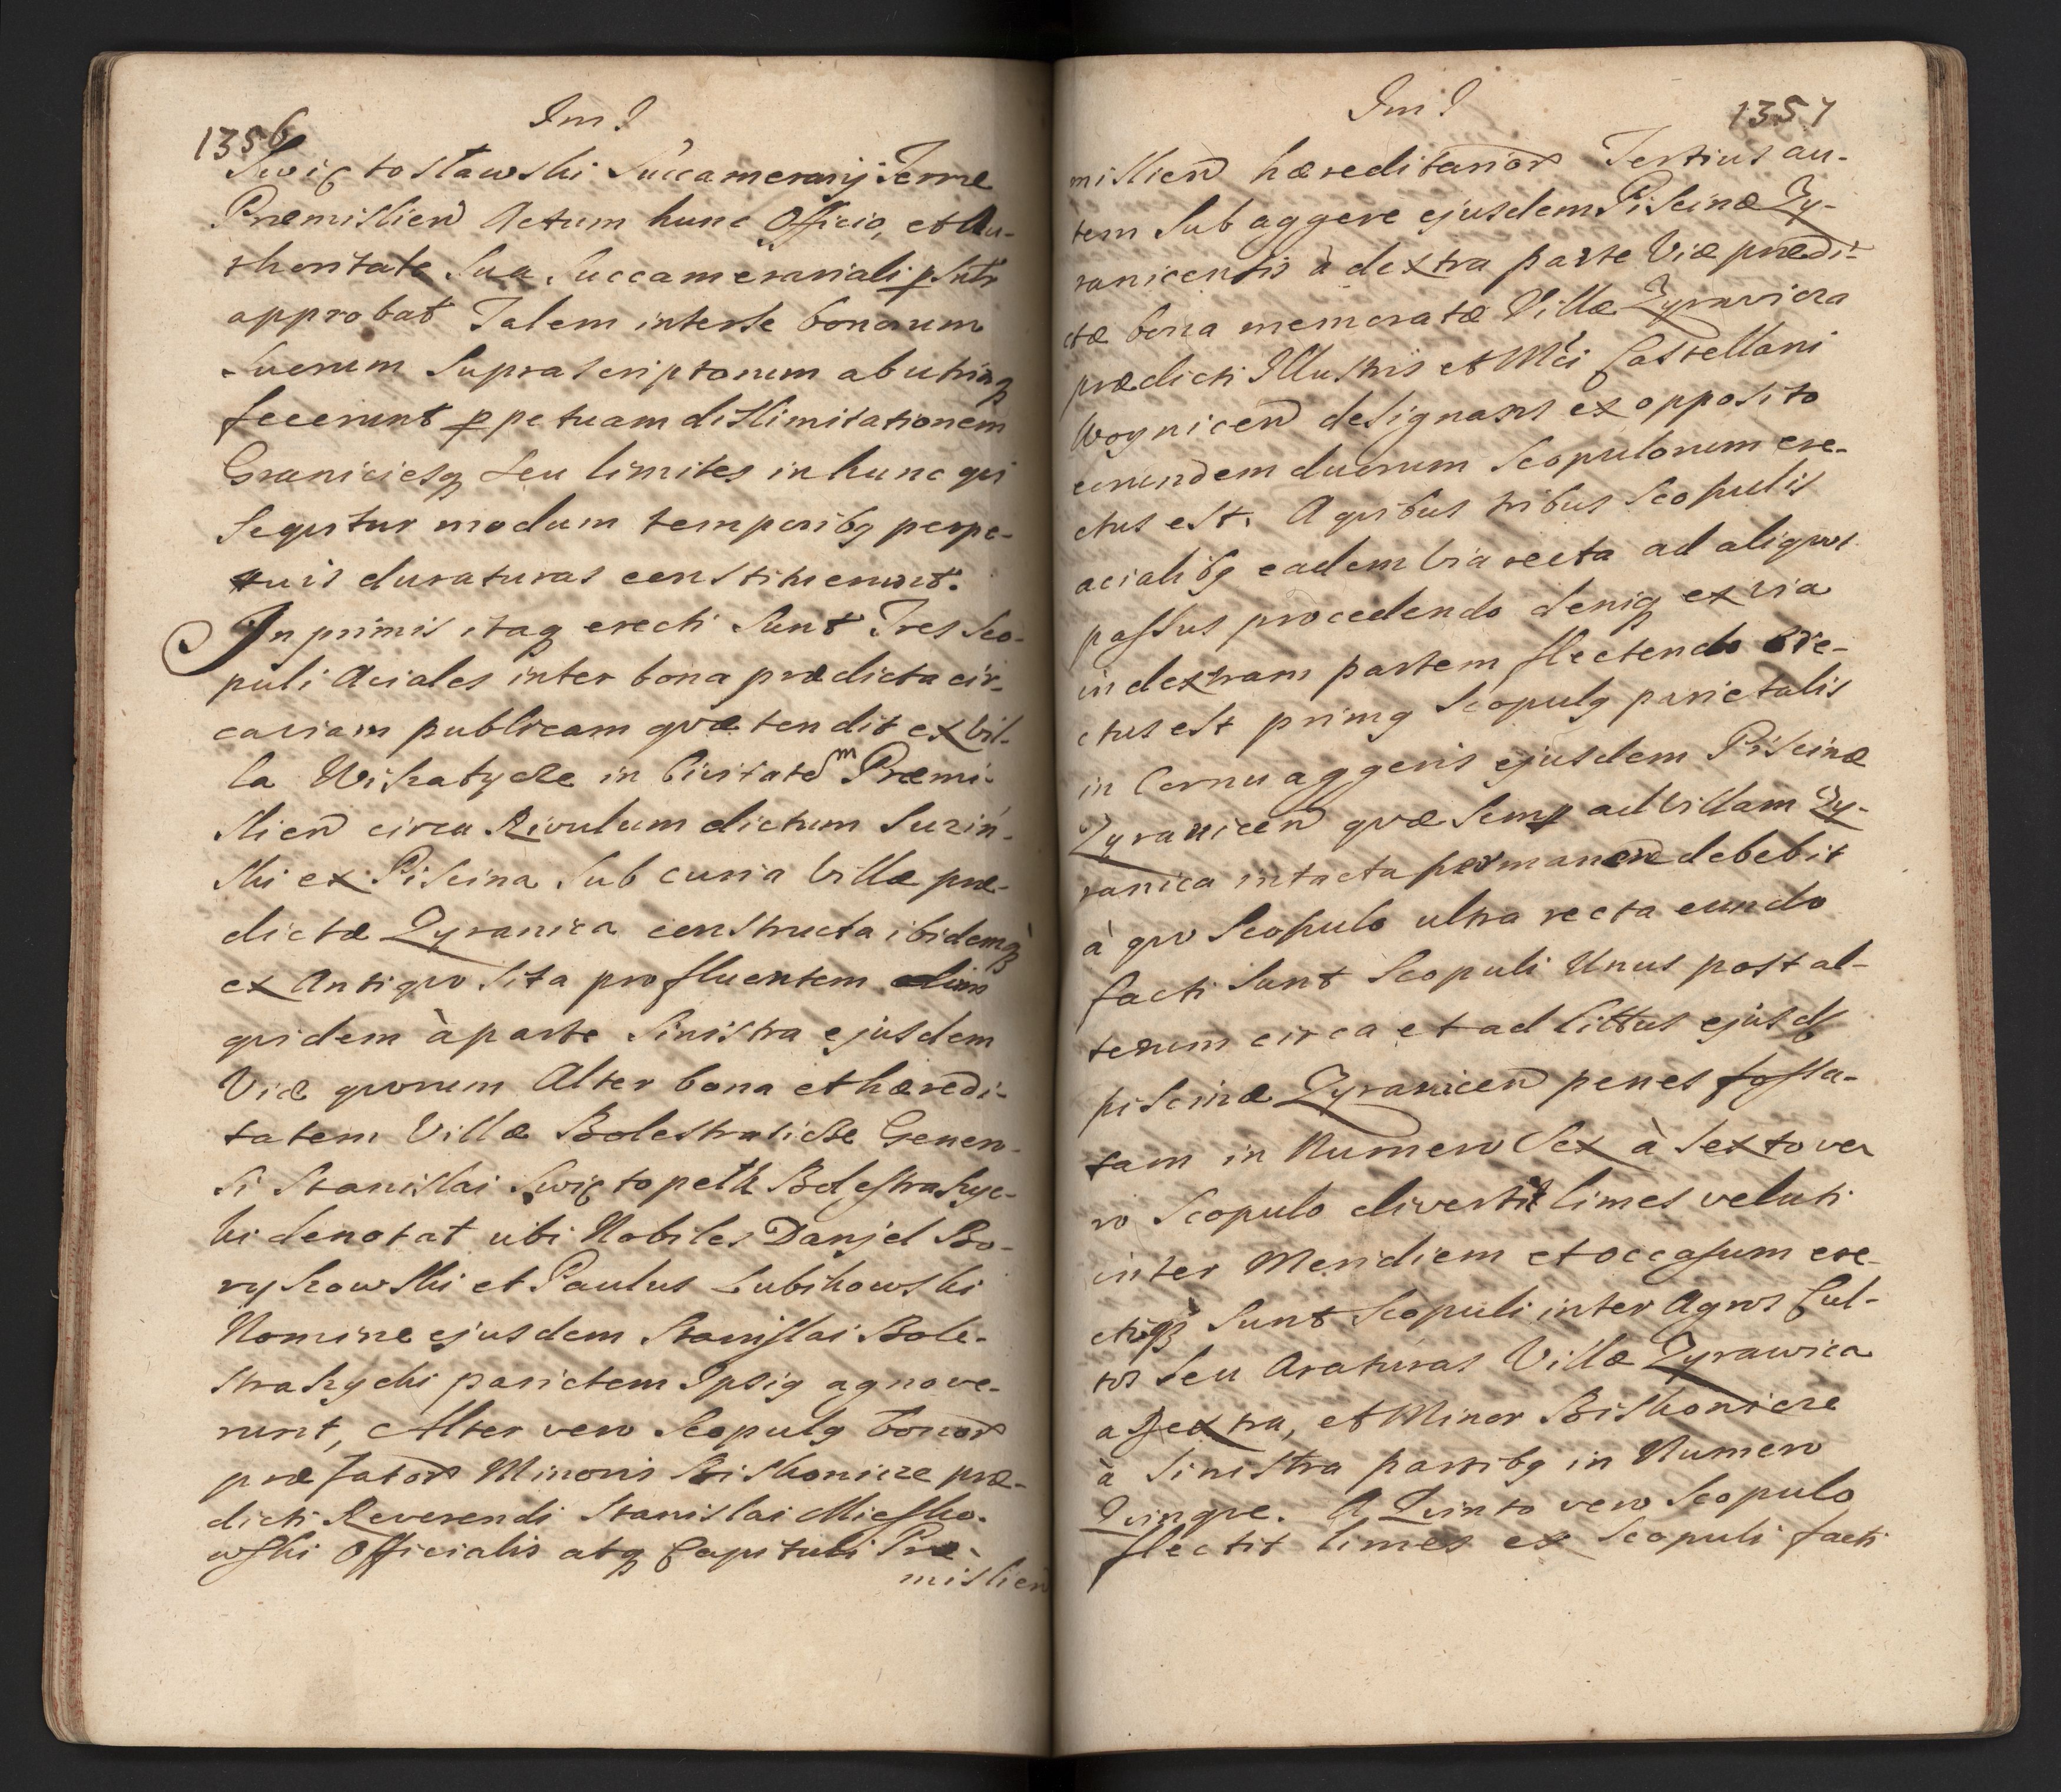 1356
Im?
Swiętosławski Succamerarij Terræ
Præmislien Actum hunc Officio, et Au-
thoritate Sua Succamerariali pSntr
approbat Talem interse bonorum
Suorum Suprascriptorum abutrinq
fecerunt ppetuam dislimitationem
Graniciesq seu limites in hunc qui
Sequitur modum temporibq perpe-
tuis duraturas constituerunt.
In primis itaq erecti Sunt Tres Sco-
puli Aciales inter bona prædicta cir-
caviam publicam quæ tendit ex Vil-
la Wikatycze in Civitate m Præmi-
slien circa Rivulum dictum Suzin-
ski ex Piscina Sub curia Villæ præ-
dictæ Zyranica constructa ibidemq
ex Antiquo Sita profluentem
quidem à parte Sinistra ejusdem
Viæ quorum Alter bona et hæredi-
tatem Villæ Bolestrasicze Genero-
si Stanislai Swiętopełk Bolestraszyc-
ki denotat ubi Nobiles Danjel Bo-
ryszowski et Paulus Lubikowski
Nomine ejusdem Stanislai Bole-
straszycki parietem Ipsiq agnove-
runt, Alter vero Scopulq bonor
præfator Minoris Biskonicze præ-
dicti Reverendi Stanislai Miesko-
wski Officialis atq Capituli Præ-
mislien
Im?
1357
mislien hæreditarior Tertius au-
tem Sub aggere ejusdem Piscinæ Zy-
ranicensis à dextra parte Viæ prædi-
ctæ bona memoratæ Villæ Zyrawicza
prædicti Illustris et Mci Castellani
Woynicen designans ex opposito
eorundem duorum Scopulorum ere-
ctus est. A quibus tribus Scopulis
acialibq eadem via recta ad aliquos
passus procedendo deniq ex via
in dextram partem flectendo ere-
ctus est primq Scopulq parietalis
in Cornu aggeris ejusdem Piscinæ
Zyranicen quæ Semp ad Villam Zy-
ranica intacta permanere debebit
à quo Scopulo ultra recta eundo
facti Sunt Scopuli Unus post al-
terum circa et ad littus ejusd
piscinæ Zyranicen penes fossa-
tam in Numero Sex à Sexto ve
ro Scopulo divertit limes veluti
inter Meridiem et occasum ere-
ctiq Sunt Scopuli inter Agros Cul-
tos Seu Araturas Villæ Zyrawica
a Dextra, et Minor Biskonicze
à Sinistra partibq in Numero
Quinque. A Quinto vero Scopulo
flectit limes ex Scopuli facti